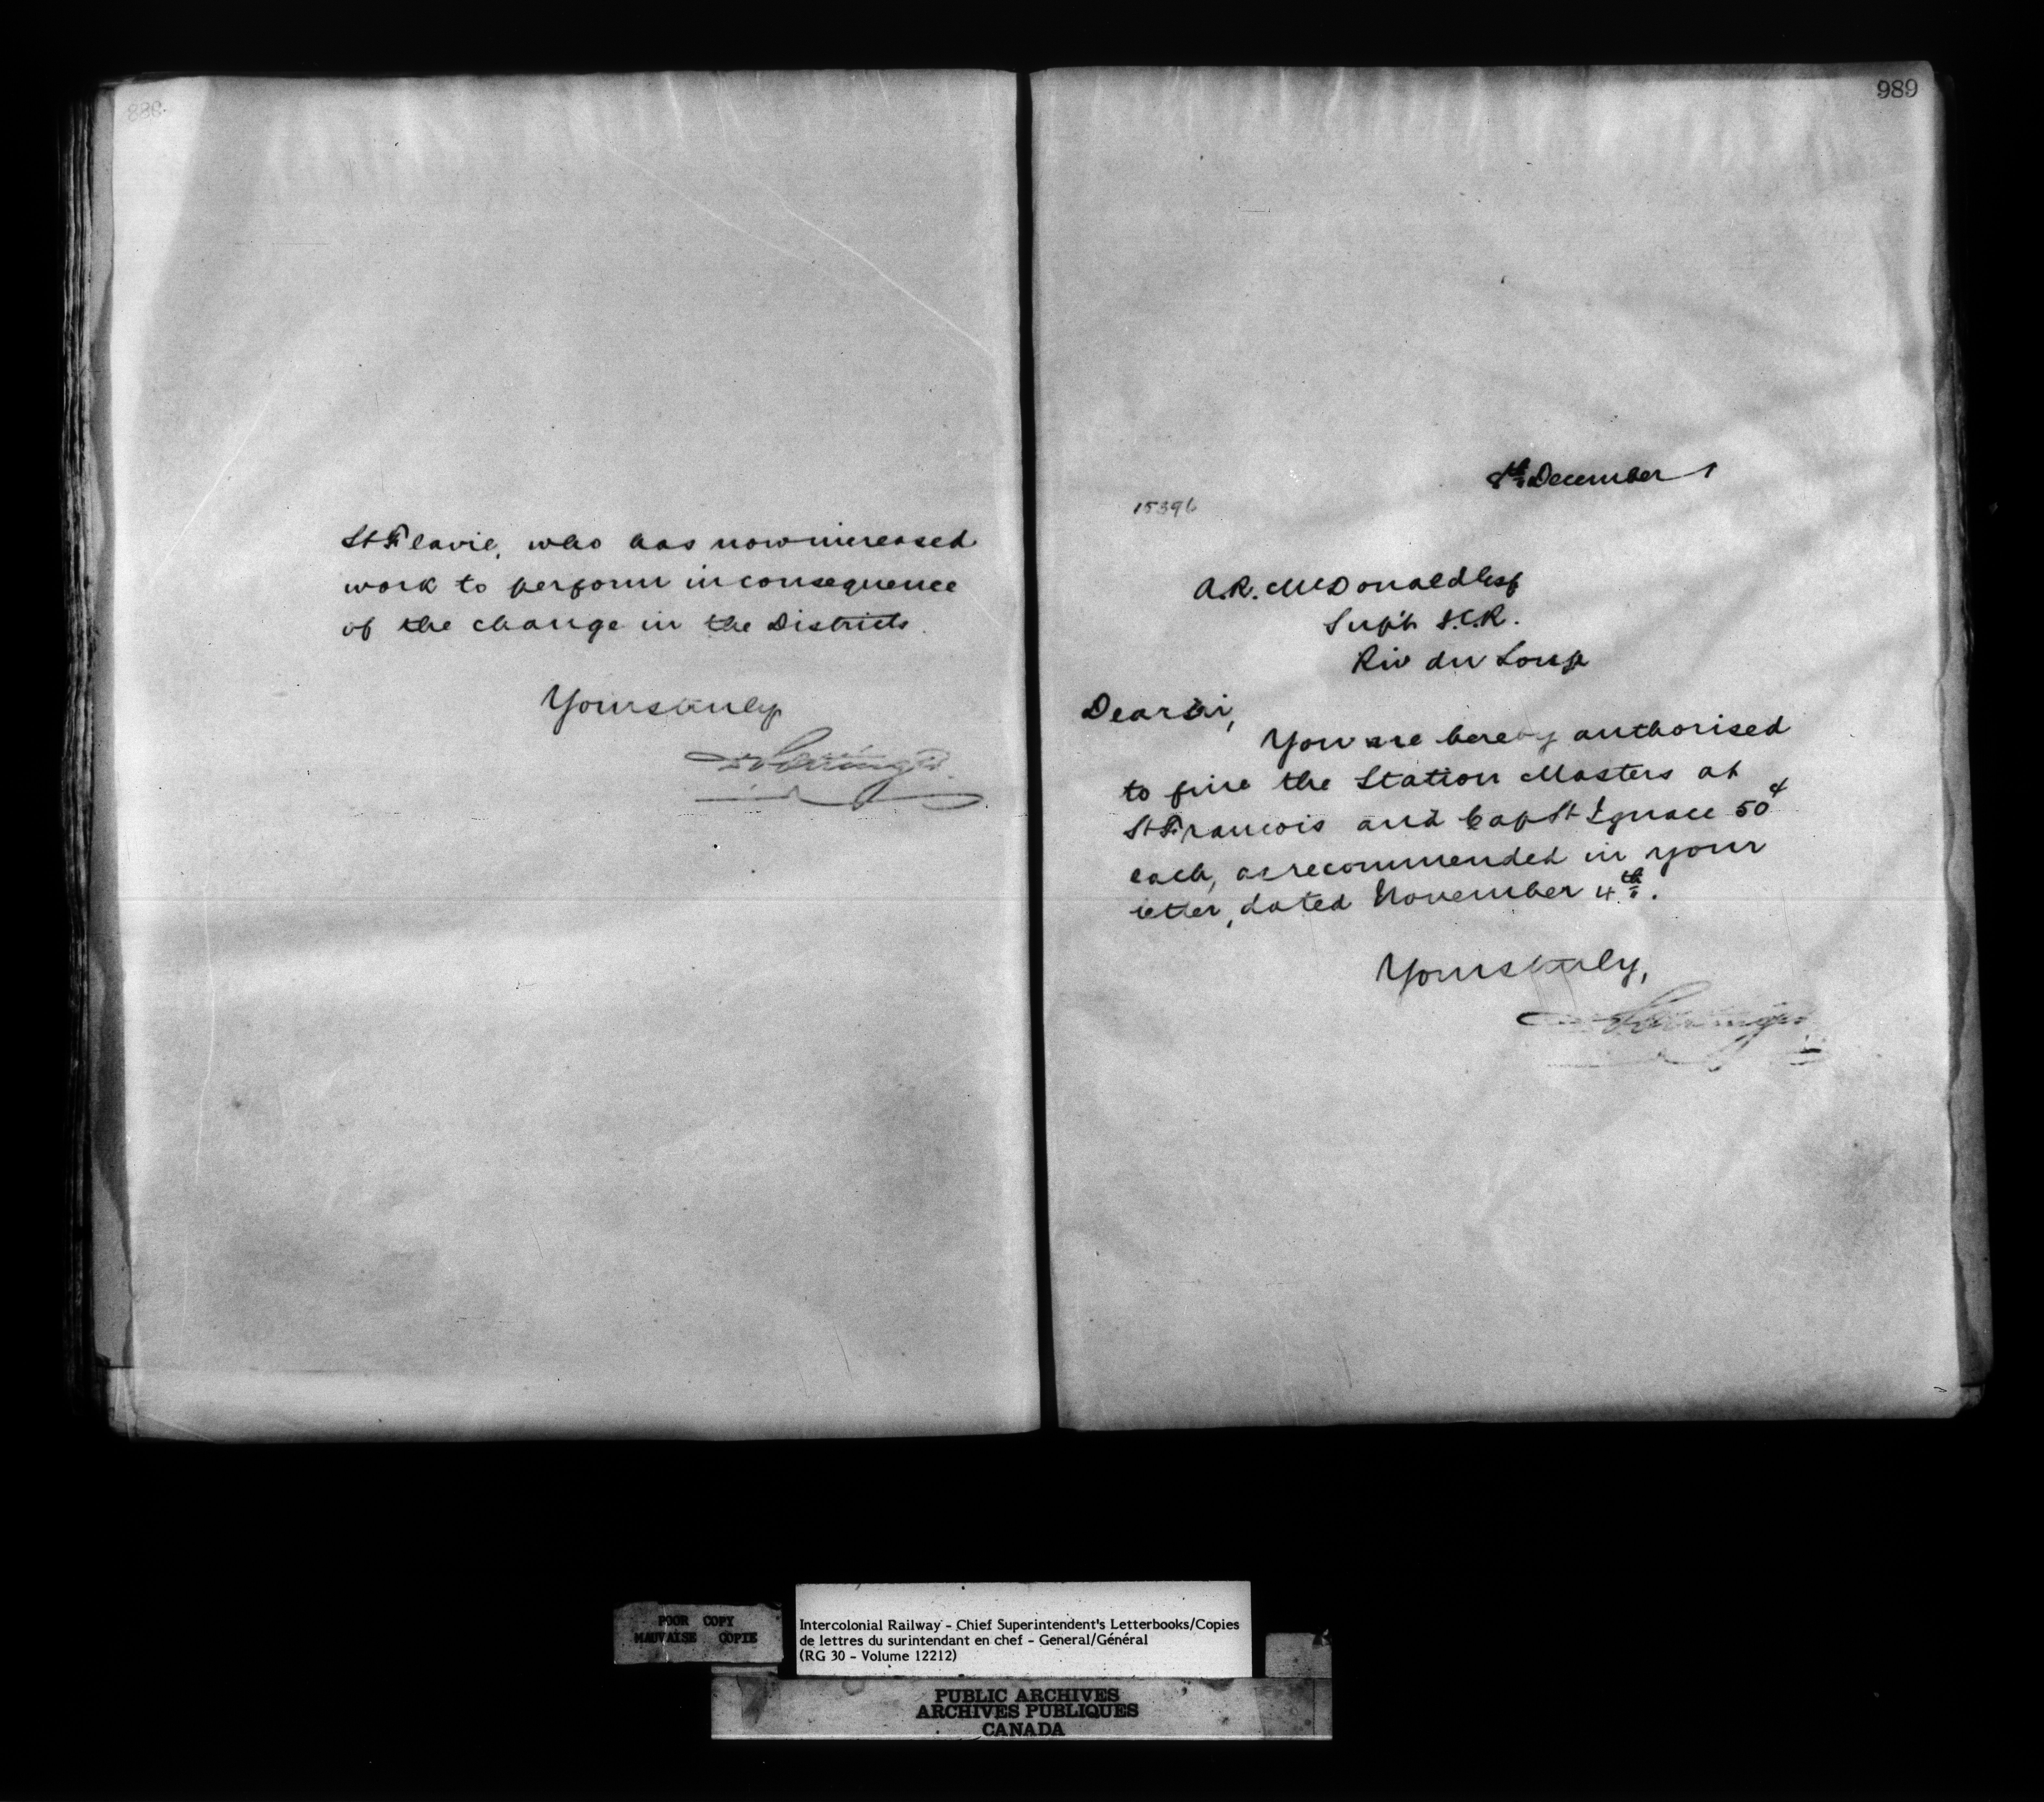 988
St Flavie, who has now increased
work to perform in consequence
of the change in the Districts.
Yours truly
989
8th December 1
15396
A.R. McDonald Esq
Supt I.C.R.
Riv du Loup
Dear Sir,
You are hereby authorised
to fine the Station Masters at
St Francois and Cap St Ignace 50¢
each, as recommended in your
letter, dated November 4th.
Yours truly,
POOR COPY
MAUVAISE COPIE
Intercolonial Railway - Chief Superintendent's Letterbooks/Copies
de lettres du surintendant en chef - General/Général
(RG 30 - Volume 12212)
PUBLIC ARCHIVES
ARCHIVES PUBLIQUES
CANADA